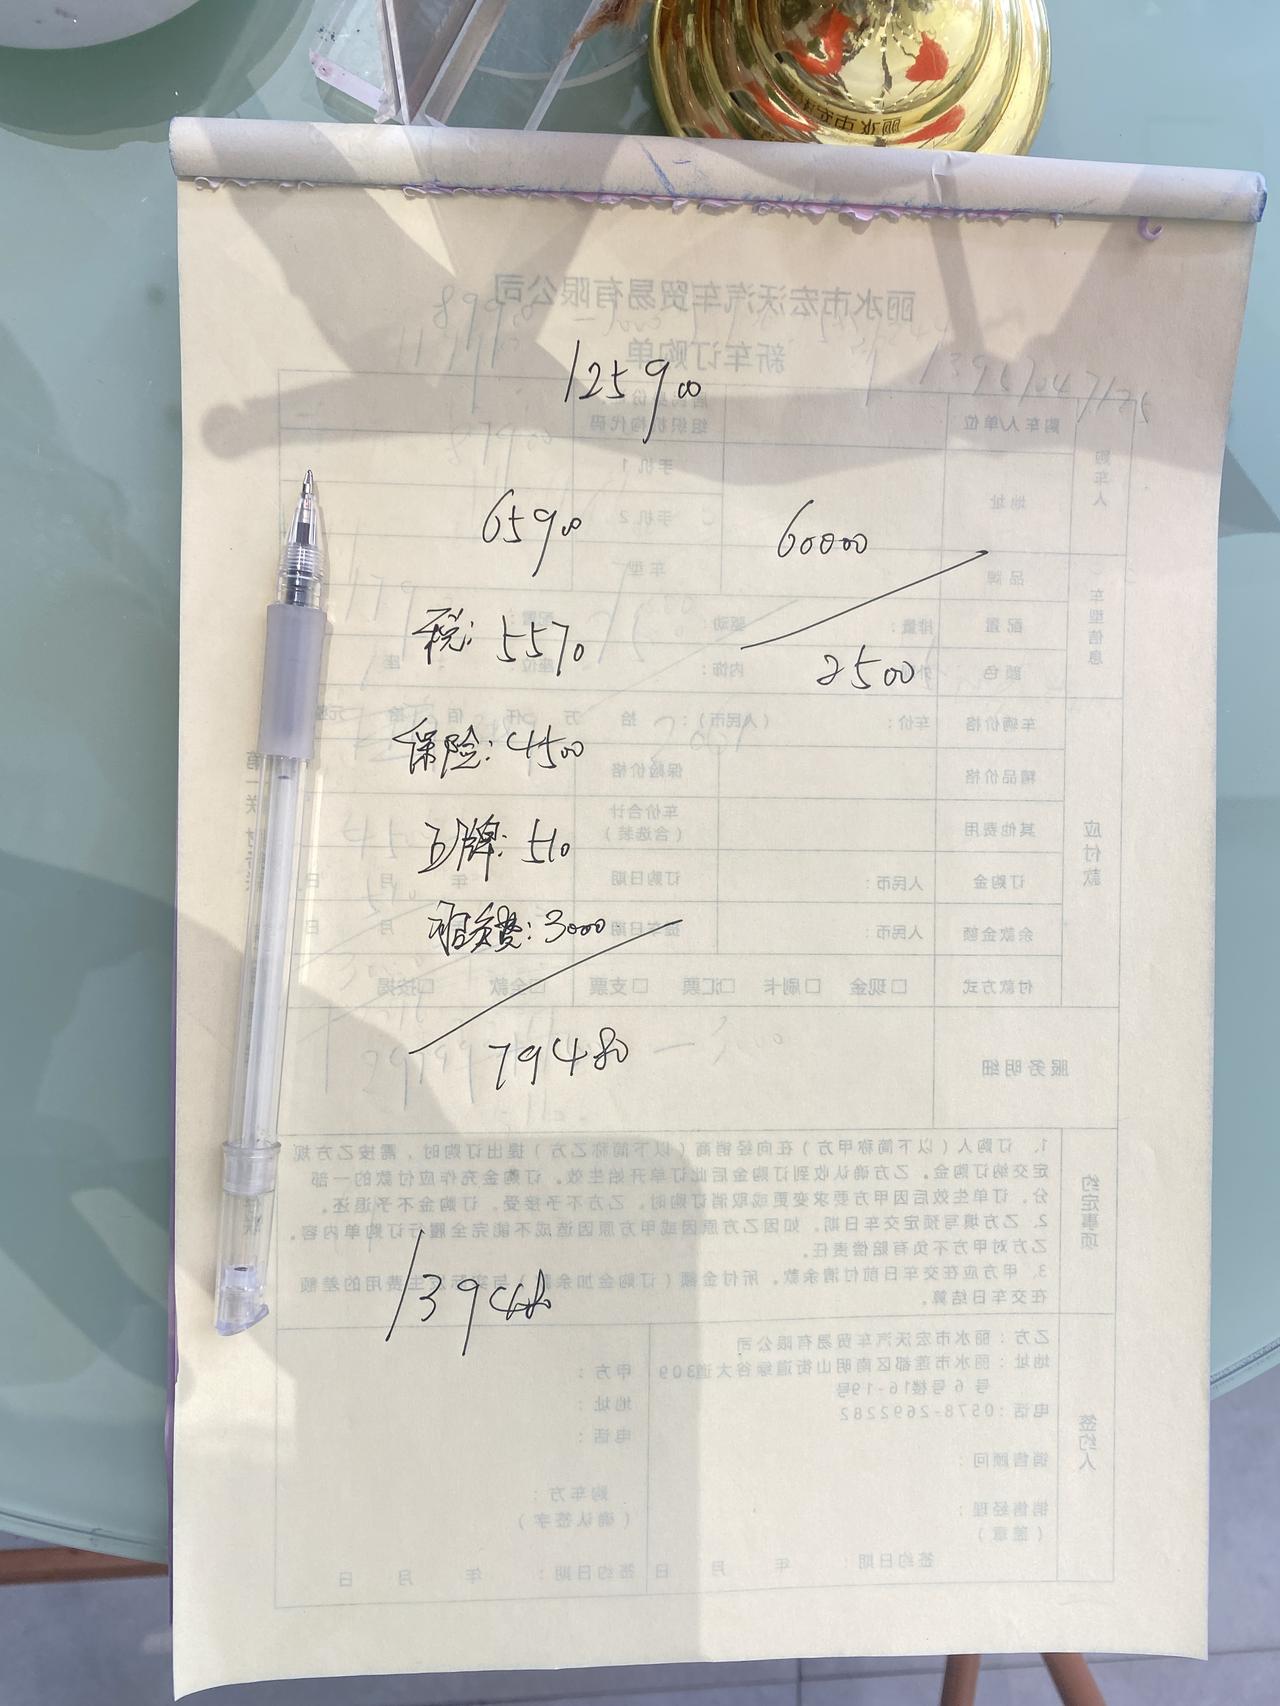 丽水市宏沃汽车贸易有限公司
新车订购单
125900
65900
60000
税: 5570
2500
保险: 4500
上牌: 510
3000
79480
购车人
购车人/单位
组织机构代码
地址
手机 1
手机 2
车型信息
品牌
车型
配置
排量:
驱动:
颜色
内饰:
座位:
座
应付款
车辆价格
车价:
(人民币):
拾
万
仟
佰
拾
精品价格
保险价格
其他费用
车价合计
(含选装)
订购金
人民币:
订购日期
年
月
日
余款金额
人民币:
提车日期
月
日
付款方式
□ 现金
□ 刷卡
□汇票
□ 支票
□全款
□按揭
服务明细
约定事项
1、订购人(以下简称甲方)在向经销商(以下简称乙方)提出订购时,需按乙方规
定交纳订购金。乙方确认收到订购金后此订单开始生效。订购金充作应付款的一部
分。订单生效后因甲方要求变更或取消订购时,乙方不予接受,订购金不予退还。
2、乙方填写预定交车日期。如因乙方原因或甲方原因造成不能完全履行订购单内容。
乙方对甲方不负有赔偿责任。
3、甲方应在交车日前付清余款。所付金额(订购金加余款)与实际发生费用的差额
在交车日结算。
签约人
乙方:丽水市宏沃汽车贸易有限公司
地址:丽水市莲都区南明山街道绿谷大道309
号6号楼16-19号
电话:0578-2692282
甲方:
地址:
电话:
销售顾问:
销售经理:
(盖章)
购车方:
(确认签字)
签约日期: 年 月 日
签约日期: 年 月 日